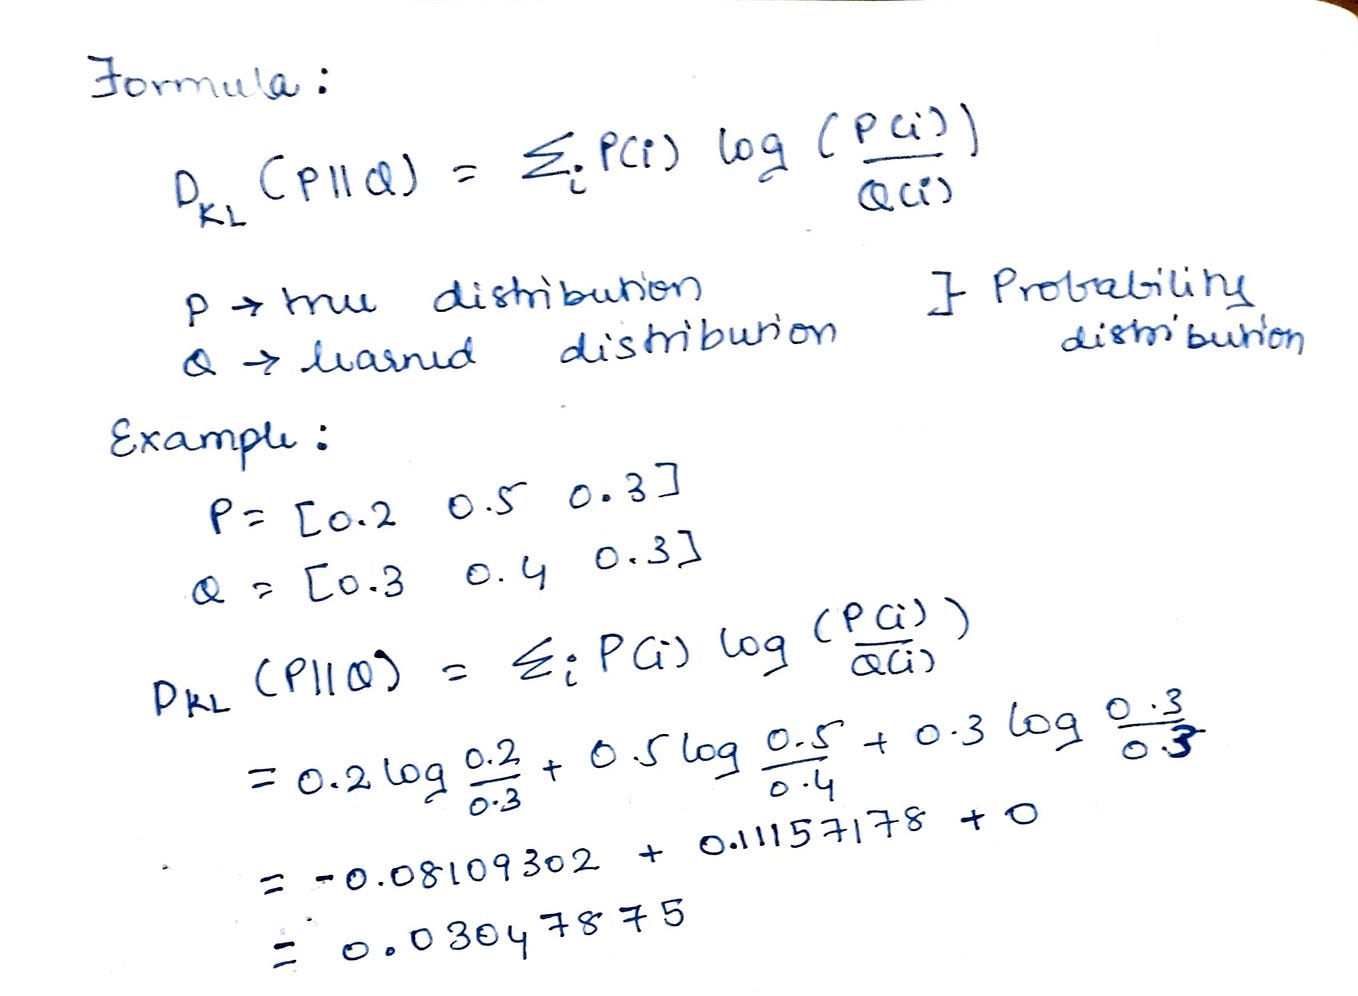 Formula:
D_KL (P||Q) = Σ_i P(i) log (P(i)/Q(i))
P → true distribution
Q → learned distribution } Probability distribution
Example:
P = [0.2 0.5 0.3]
Q = [0.3 0.4 0.3]
D_KL (P||Q) = Σ_i P(i) log (P(i)/Q(i))
= 0.2 log 0.2/0.3 + 0.5 log 0.5/0.4 + 0.3 log 0.3/0.3
= -0.08109302 + 0.11157178 + 0
= 0.03047875